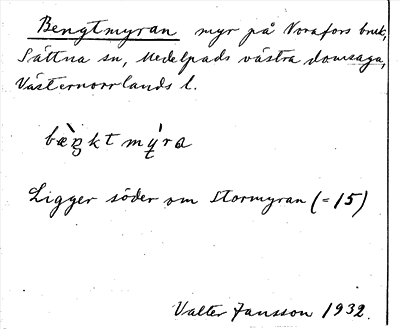 Bengtmyran myr på Norafors bruk,
Sättna sn, Medelpads västra domsaga,
Västernorrlands l.
bæ̀ŋktmỳ̨ra
Ligger söder om Stormyran (= 15)
Valter Jansson 1932.